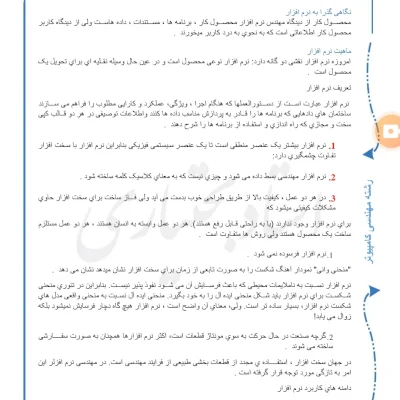 نگاهی گذرا به نرم افزار
محصول کار از دیدگاه مهندس نرم افزار محصول کار ، برنامه ها ، مستندات ، داده هاست ولی از دیدگاه کاربر
محصول کار اطلاعاتی است که به نحوی به درد کاربر میخورند .
ماهیت نرم افزار
امروزه نرم افزار نقشی دو گانه دارد: نرم افزار نوعی محصول است و در عین حال وسیله نقلیه ای برای تحویل یک
محصول است .
تعریف نرم افزار
نرم افزار عبارت است از دستورالعملها که هنگام اجرا ، ویژگی، عملکرد و کارایی مطلوب را فراهم می سازند
ساختمان های دادهایی که برنامه ها را قادر به پردازش مناسب داده ها کنند واطلاعات توصیفی در هر دو قالب کپی
سخت و مجازی که راه اندازی و استفاده از برنامه ها را شرح دهند .
1. نرم افزار بیشتر یک عنصر منطقی است تا یک عنصر سیستمی فیزیکی بنابراین نرم افزار با سخت افزار
تفاوت چشمگیری دارد:
2. نرم افزار مهندسی بسط داده می شود و چیزی نیست که به معنای کلاسیک کلمه ساخته شود .
3. در هر دو عمل ، کیفیت بالا از طریق طراحی خوب بدست می آید ولی فاز ساخت برای سخت افزار حاوی
مشکلات کیفیتی میشود که
برای نرم افزار وجود ندارند (یا به راحتی قابل رفع هستند). هر دو عمل وابسته به انسان هستند ، هر دو عمل مستلزم
ساخت یک محصول هستند ولی روش ها متفاوت است .
1. نرم افزار فرسوده نمی شود .
"منحنی وانی" نمودار آهنگ شکست را به صورت تابعی از زمان برای سخت افزار نشان میدهد نشان می دهد .
نرم افزار نسبت به ناملایمات محیطی که باعث فرسایش آن می شود نفوذ پذیر نیست. بنابراین در تئوری منحنی
شکست برای نرم افزار باید شکل منحنی ایده آل را به خود بگیرد. منحنی ایده آل نسبت به منحنی واقعی مدل های
شکست نرم افزار، بسیار ساده تر است. ولی، معنای آن واضح است ، نرم افزار هیچ گاه دچار فرسایش نمیشود بلکه
زوال می یابد!
2. گرچه صنعت در حال حرکت به سوی مونتاژ قطعات است، اکثر نرم افزارها همچنان به صورت سفارشی
ساخته می شوند .
در جهان سخت افزار ، استفاده ی مجدد از قطعات بخشی طبیعی از فرایند مهندسی است. در مهندسی نرم افزر این
امر به تازگی مورد توجه قرار گرفته است .
دامنه های کاربرد نرم افزار
رشته مهندسی کامپیوتر